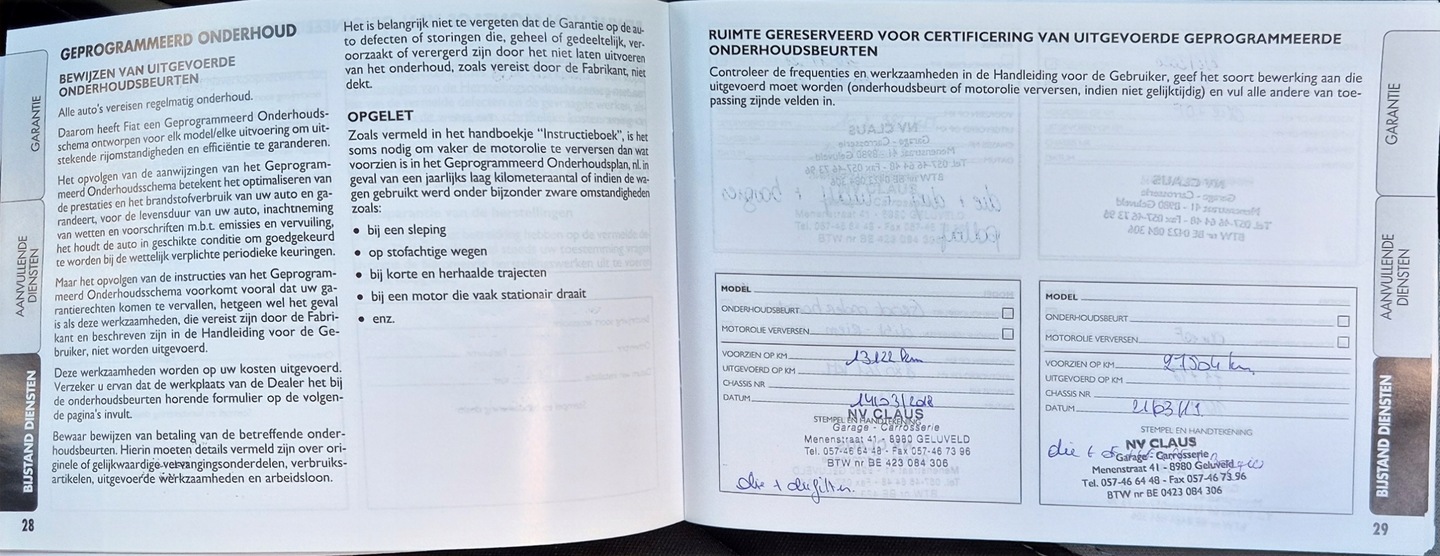 GEPROGRAMMEERD ONDERHOUD
BEWIJZEN VAN UITGEVOERDE
ONDERHOUDSBEURTEN
Alle auto's vereisen regelmatig onderhoud.
Daarom heeft Fiat een Geprogrammeerd Onderhouds-
schema ontworpen voor elk model/elke uitvoering om uit-
stekende rijomstandigheden en efficiëntie te garanderen.
Het opvolgen van de aanwijzingen van het Geprogram-
meerd Onderhoudsschema betekent het optimaliseren van
de prestaties en het brandstofverbruik van uw auto en ga-
randeert, voor de levensduur van uw auto, inachtneming
van wetten en voorschriften m.b.t. emissies en vervuiling,
het houdt de auto in geschikte conditie om goedgekeurd
te worden bij de wettelijk verplichte periodieke keuringen.
Maar het opvolgen van de instructies van het Geprogram-
meerd Onderhoudsschema voorkomt vooral dat uw ga-
rantierechten komen te vervallen, hetgeen wel het geval
is als deze werkzaamheden, die vereist zijn door de Fabri-
kant en beschreven zijn in de Handleiding voor de Ge-
bruiker, niet worden uitgevoerd.
Deze werkzaamheden worden op uw kosten uitgevoerd.
Verzeker u ervan dat de werkplaats van de Dealer het bij
de onderhoudsbeurten horende formulier op de volgen-
de pagina's invult.
Bewaar bewijzen van betaling van de betreffende onder-
houdsbeurten. Hierin moeten details vermeld zijn over ori-
ginele of gelijkwaardige vervangingsonderdelen, verbruiks-
artikelen, uitgevoerde werkzaamheden en arbeidsloon.
28
GARANTIE
AANVULLENDE
DIENSTEN
BIJSTAND DIENSTEN
Het is belangrijk niet te vergeten dat de Garantie op de au-
to defecten of storingen die, geheel of gedeeltelijk, ver-
oorzaakt of verergerd zijn door het niet laten uitvoeren
van het onderhoud, zoals vereist door de Fabrikant, niet
dekt.
OPGELET
Zoals vermeld in het handboekje "Instructieboek", is het
soms nodig om vaker de motorolie te verversen dan wat
voorzien is in het Geprogrammeerd Onderhoudsplan, nl. in
geval van een jaarlijks laag kilometeraantal of indien de wa-
gen gebruikt werd onder bijzonder zware omstandigheden
zoals:
• bij een sleping
• op stofachtige wegen
• bij korte en herhaalde trajecten
• bij een motor die vaak stationair draait
• enz.
RUIMTE GERESERVEERD VOOR CERTIFICERING VAN UITGEVOERDE GEPROGRAMMEERDE
ONDERHOUDSBEURTEN
Controleer de frequenties en werkzaamheden in de Handleiding voor de Gebruiker, geef het soort bewerking aan die
uitgevoerd moet worden (onderhoudsbeurt of motorolie verversen, indien niet gelijktijdig) en vul alle andere van toe-
passing zijnde velden in.
MODEL
ONDERHOUDSBEURT
MOTOROLIE VERVERSEN
VOORZIEN OP KM 13122 km
UITGEVOERD OP KM
CHASSIS NR
DATUM 14/03/2018
STEMPEL EN HANDTEKENING
NV CLAUS
Garage - Carrosserie
Menenstraat 41 - 8980 GELUVELD
Tel. 057-46 64 48 - Fax 057-46 73 96
BTW nr BE 423 084 306
MODEL
ONDERHOUDSBEURT
MOTOROLIE VERVERSEN
VOORZIEN OP KM 27504 km
UITGEVOERD OP KM
CHASSIS NR
DATUM 21/03/19
STEMPEL EN HANDTEKENING
NV CLAUS
Garage - Carrosserie
Menenstraat 41 - 8980 Geluveld
Tel. 057-46 64 48 - Fax 057-46 73 96
BTW nr BE 0423 084 306
GARANTIE
AANVULLENDE
DIENSTEN
BIJSTAND DIENSTEN
29